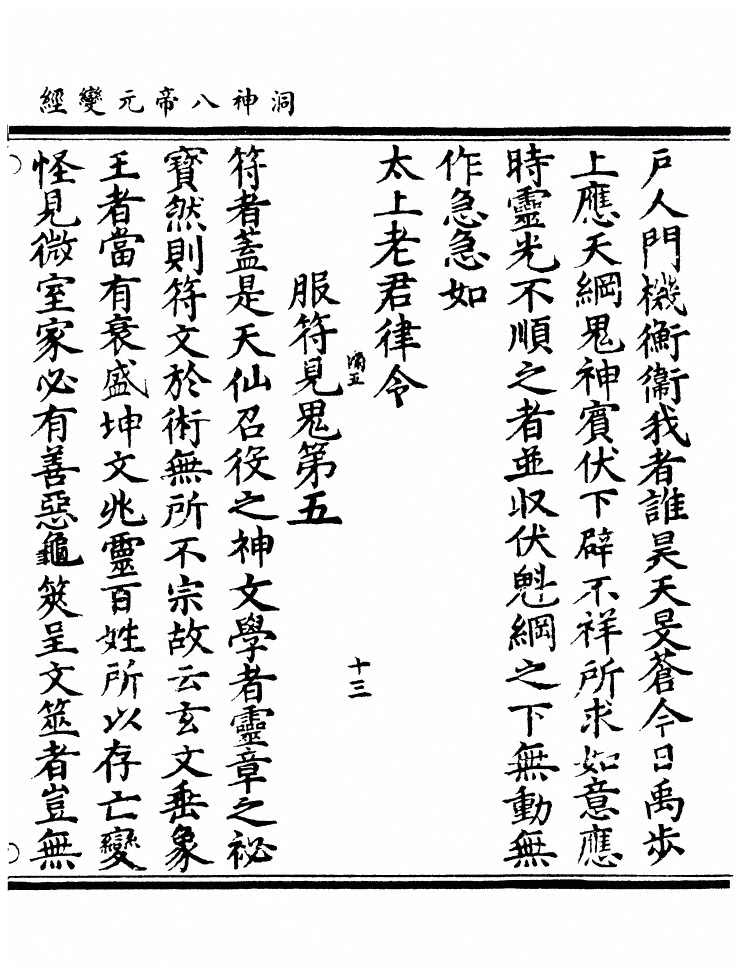 洞神八帝元變經
戶人門機衡衞我者誰昊天旻蒼今日禹步
上應天綱鬼神賓伏下辟不祥所求如意應
時靈光不順之者並収伏魁綱之下無動無
作急急如
太上老君律令
滿五
十三
服符見鬼第五
符者蓋是天仙召役之神文學者靈章之祕
寳然則符文於術無所不宗故云玄文垂象
王者當有衰盛坤文兆靈百姓所以存亡變
怪見微室家必有善惡龜筴呈文筮者豈無